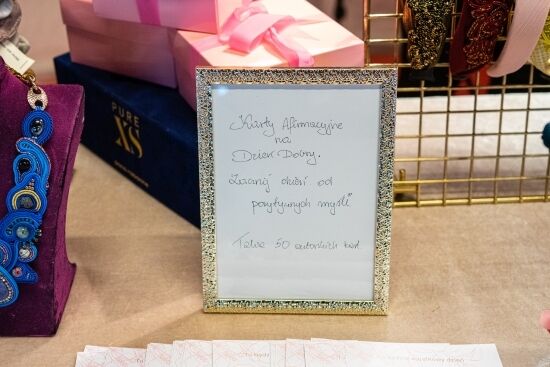 PURE
XS
Karty Afirmacyjne
na
Dzień Dobry.
Zacznij dzień od
pozytywnych myśli"
Talia 50 autorskich kart